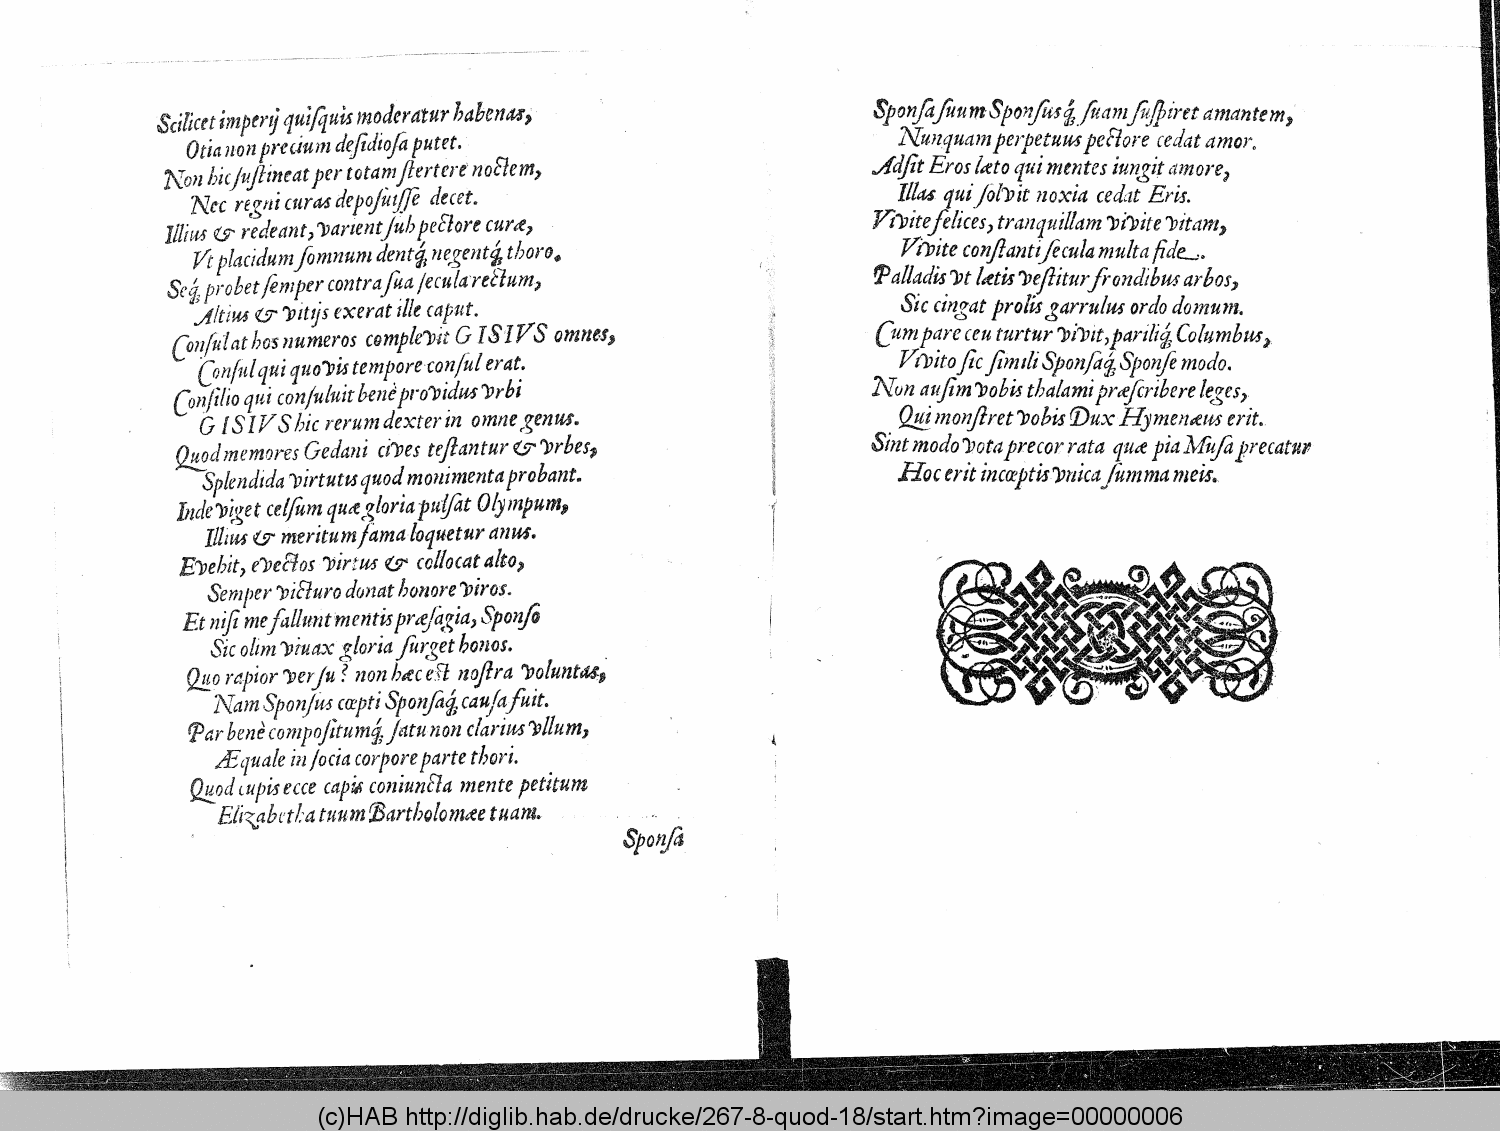 Scilicet imperij quiſquis moderatur habenas,
Otia non precium deſidioſa putet.
Non hic ſuſtineat per totam ſtertere noctem,
Nec regni curas depoſuiſſe decet.
Illius & redeant, varient ſub pectore curæ,
Vt placidum ſomnum dentq́; negentq́; thoro.
Seq́; probet ſemper contra ſua ſecula rectum,
Altius & vitijs exerat ille caput.
Conſulat hos numeros complevit GISIVS omnes,
Conſul qui quovis tempore conſul erat.
Conſilio qui conſuluit benè providus vrbi
GISIVS hic rerum dexter in omne genus.
Quod memores Gedani cives teſtantur & vrbes,
Splendida virtutis quod monimenta probant.
Inde viget celſum quæ gloria pulſat Olympum,
Illius & meritum fama loquetur anus.
Evehit, evectos virtus & collocat alto,
Semper victuro donat honore viros.
Et niſi me fallunt mentis præſagia, Sponſo
Sic olim viuax gloria ſurget honos.
Quo rapior verſu? non hæc eſt noſtra voluntas,
Nam Sponſus cœpti Sponſaq́; cauſa fuit.
Par benè compoſitumq́; ſatu non clarius vllum,
Æquale in ſocia corpore parte thori.
Quod cupis ecce capis coniuncta mente petitum
Elizabetha tuum Bartholomæe tuam.
Sponſa
Sponſa ſuum Sponſusq́; ſuam ſuſpiret amantem,
Nunquam perpetuus pectore cedat amor.
Adſit Eros læto qui mentes iungit amore,
Illas qui ſolvit noxia cedat Eris.
Vivite felices, tranquillam vivite vitam,
Vivite conſtanti ſecula multa fide.
Palladis vt lætis veſtitur frondibus arbos,
Sic cingat prolis garrulus ordo domum.
Cum pare ceu turtur vivit, pariliq́; Columbus,
Vivito ſic ſimili Sponſaq́; Sponſe modo.
Non auſim vobis thalami præſcribere leges,
Qui monſtret vobis Dux Hymenæus erit.
Sint modo vota precor rata quæ pia Muſa precatur
Hoc erit incœptis vnica ſumma meis.
(c)HAB http://diglib.hab.de/drucke/267-8-quod-18/start.htm?image=00000006